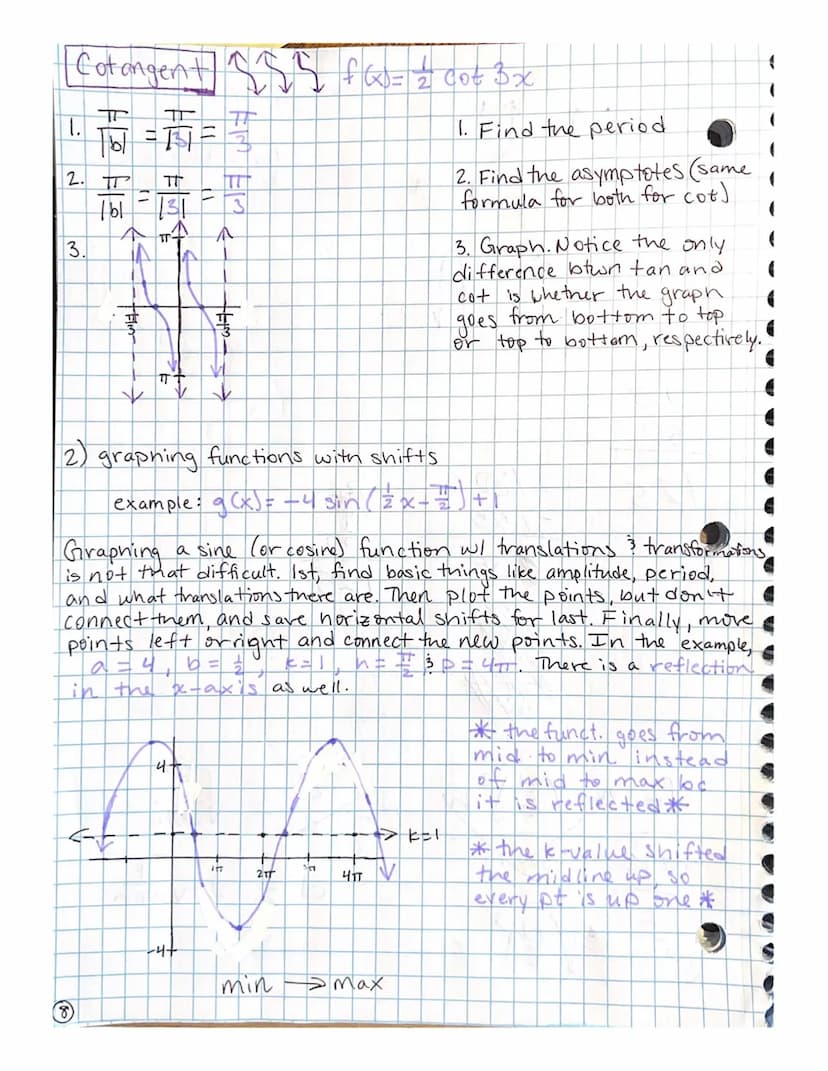 Cotangent f(x)= 1/2 cot 3x
1. π/|b| = π/|3| = π/3
1. Find the period
2. π/|b| = π/|3| = π/3
2. Find the asymptotes (same
formula for both for cot)
3.
3. Graph. Notice the only
difference btwn tan and
cot is whether the graph
goes from bottom to top
or top to bottom, respectively.
π
π/3 π/3
π
2) graphing functions with shifts
example: g(x)= -4 sin(1/2x-π/2)+1
Graphing a sine (or cosine) function w/ translations & transformations
is not that difficult. 1st, find basic things like amplitude, period,
and what translations there are. Then plot the points, but don't
connect them, and save horizontal shifts for last. Finally, move
points left or right and connect the new points. In the example,
a=4, b=1/2, k=1, h=π/2 & p=4π. There is a reflection
in the x-axis as well.
* the funct. goes from
mid to min instead
of mid to max bc
it is reflected *
* the k-value shifted
the midline up, so
every pt is up one *
4
k=1
2π 4π
-4
min → max
8